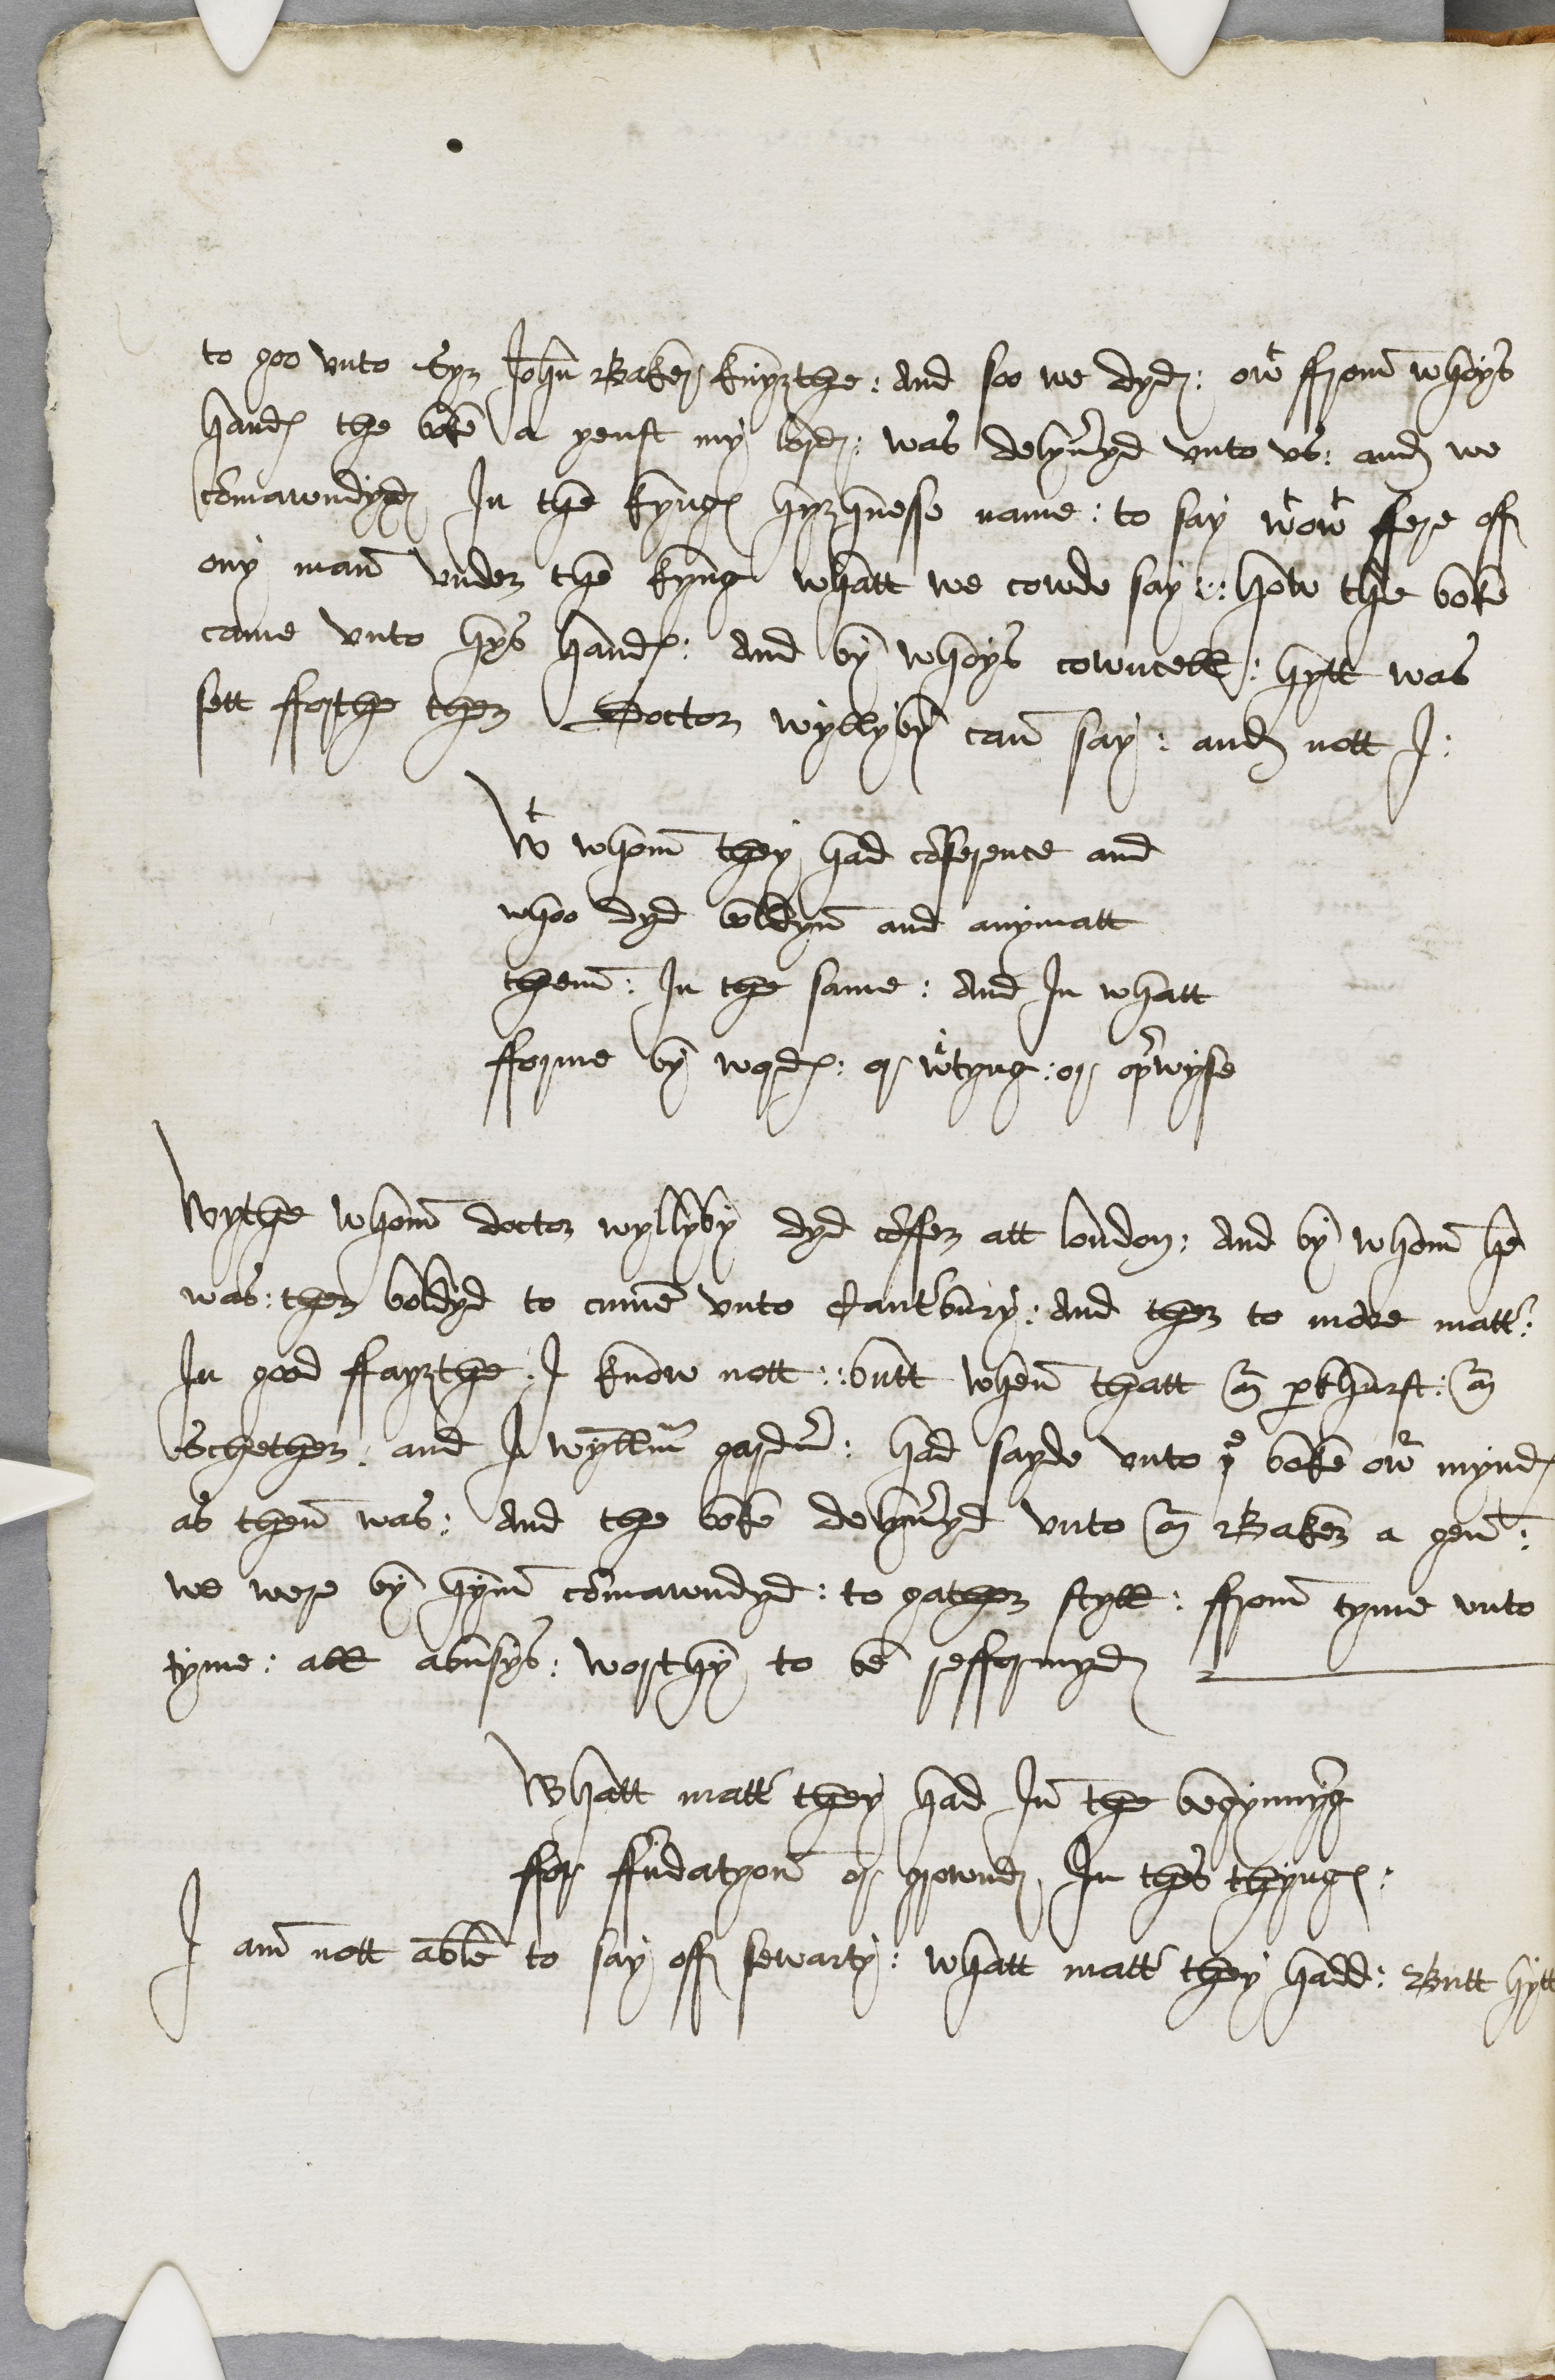 to goo vnto Syr John Baker knyzthe : And soo we dyd : owt ffrom whoys
handes the boke a yenst my lord : was delyueryd vnto vs : and we
comawndyd In the kynges hyzhnesse name : to say wt owt fere off
ony man vnder the kyng whatt we cowde say : : how the boke
came vnto hys handes : And by whoys cowncell : hytt was
sett fforthe ther Doctor wyllyby can say : and nott I :
Wt whom they had conference and
whoo dyd boldyn and anymatt
them : In the same : And In whatt
fforme by wordes : or wrtyng : or oþerwyse
Wythe whom doctor wyllyby dyd conffer att london : And by whom he
was : ther boldyd to cume vnto Canterbury : And ther to move matter :
In good ffayzthe : I know nott : : butt when thatt Mr parkhurst : Mr
Schether : and I wyllm gardner : had sayde vnto þe boke owr myndes
as then was : And the boke delyueryd vnto Mr Baker a gen :
we were by hym comawndyd : to gather styll : ffrom tyme vnto
tyme : all abusys : worthy to be refformyd
Whatt matter they had In the begynnyng
ffor ffundatyon or grownd In thes thynges :
I am nott able to say off sewarty : whatt matter they hadd : Butt hytt